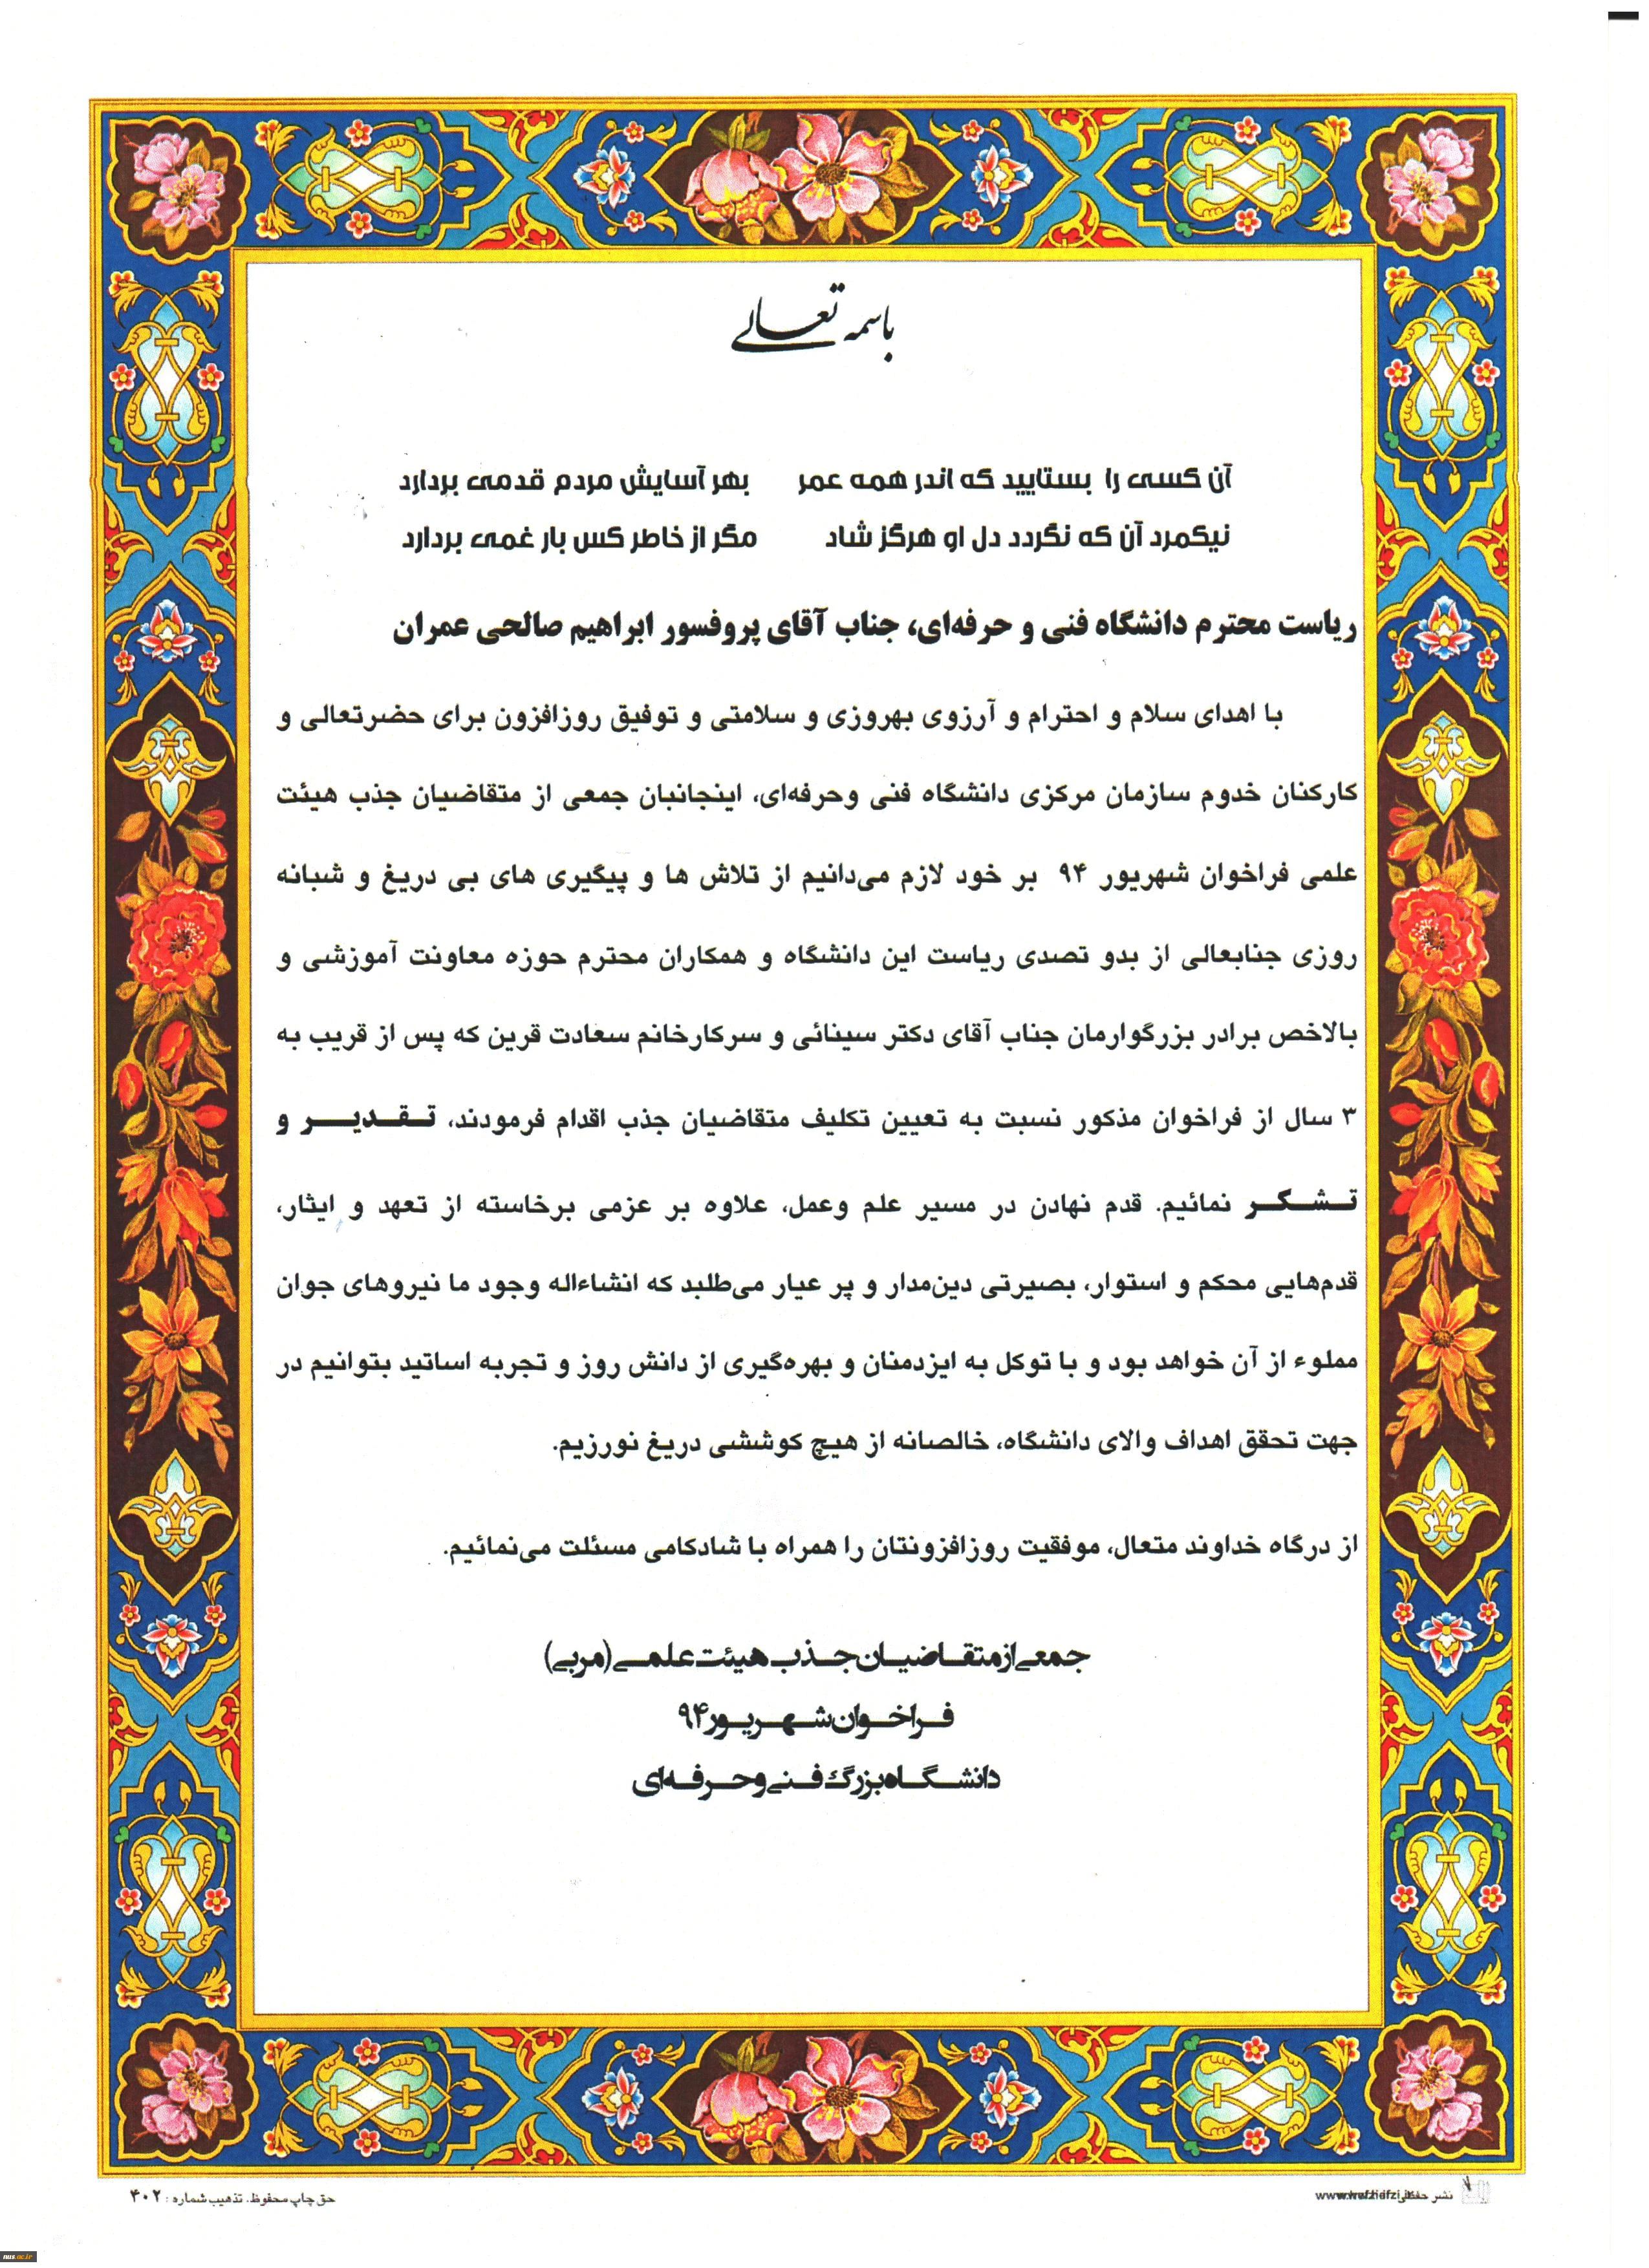 باسمه تعالی
آن کسی را بستایید که اندر همه عمر بهر آسایش مردم قدمی بردارد
نیکمرد آن که نگردد دل او هرگز شاد مگر از خاطر کس بار غمی بردارد
ریاست محترم دانشگاه فنی و حرفه‌ای، جناب آقای پروفسور ابراهیم صالحی عمران
با اهدای سلام و احترام و آرزوی بهروزی و سلامتی و توفیق روزافزون برای حضرتعالی و
کارکنان خدوم سازمان مرکزی دانشگاه فنی وحرفه‌ای، اینجانبان جمعی از متقاضیان جذب هیئت
علمی فراخوان شهریور ۹۴ بر خود لازم می‌دانیم از تلاش ها و پیگیری های بی دریغ و شبانه
روزی جنابعالی از بدو تصدی ریاست این دانشگاه و همکاران محترم حوزه معاونت آموزشی و
بالاخص برادر بزرگوارمان جناب آقای دکتر سینائی و سرکارخانم سعادت قرین که پس از قریب به
۳ سال از فراخوان مذکور نسبت به تعیین تکلیف متقاضیان جذب اقدام فرمودند، تـقـدیـــر و
تــشــکــر نمائیم. قدم نهادن در مسیر علم وعمل، علاوه بر عزمی برخاسته از تعهد و ایثار،
قدم‌هایی محکم و استوار، بصیرتی دین‌مدار و پر عیار می‌طلبد که انشاءاله وجود ما نیروهای جوان
مملوء از آن خواهد بود و با توکل به ایزدمنان و بهره‌گیری از دانش روز و تجربه اساتید بتوانیم در
جهت تحقق اهداف والای دانشگاه، خالصانه از هیچ کوششی دریغ نورزیم.
از درگاه خداوند متعال، موفقیت روزافزونتان را همراه با شادکامی مسئلت می‌نمائیم.
جمعی از متقـاضیـان جـذب هیئت علمـی (مربی)
فـراخـوان شـهـریـور ۹۴
دانشـگـاه بزرگ فـنی و حـرفـه ای
حق چاپ محفوظ. تذهیب شماره : ۴۰۲
نشر حفظی
nus.ac.ir